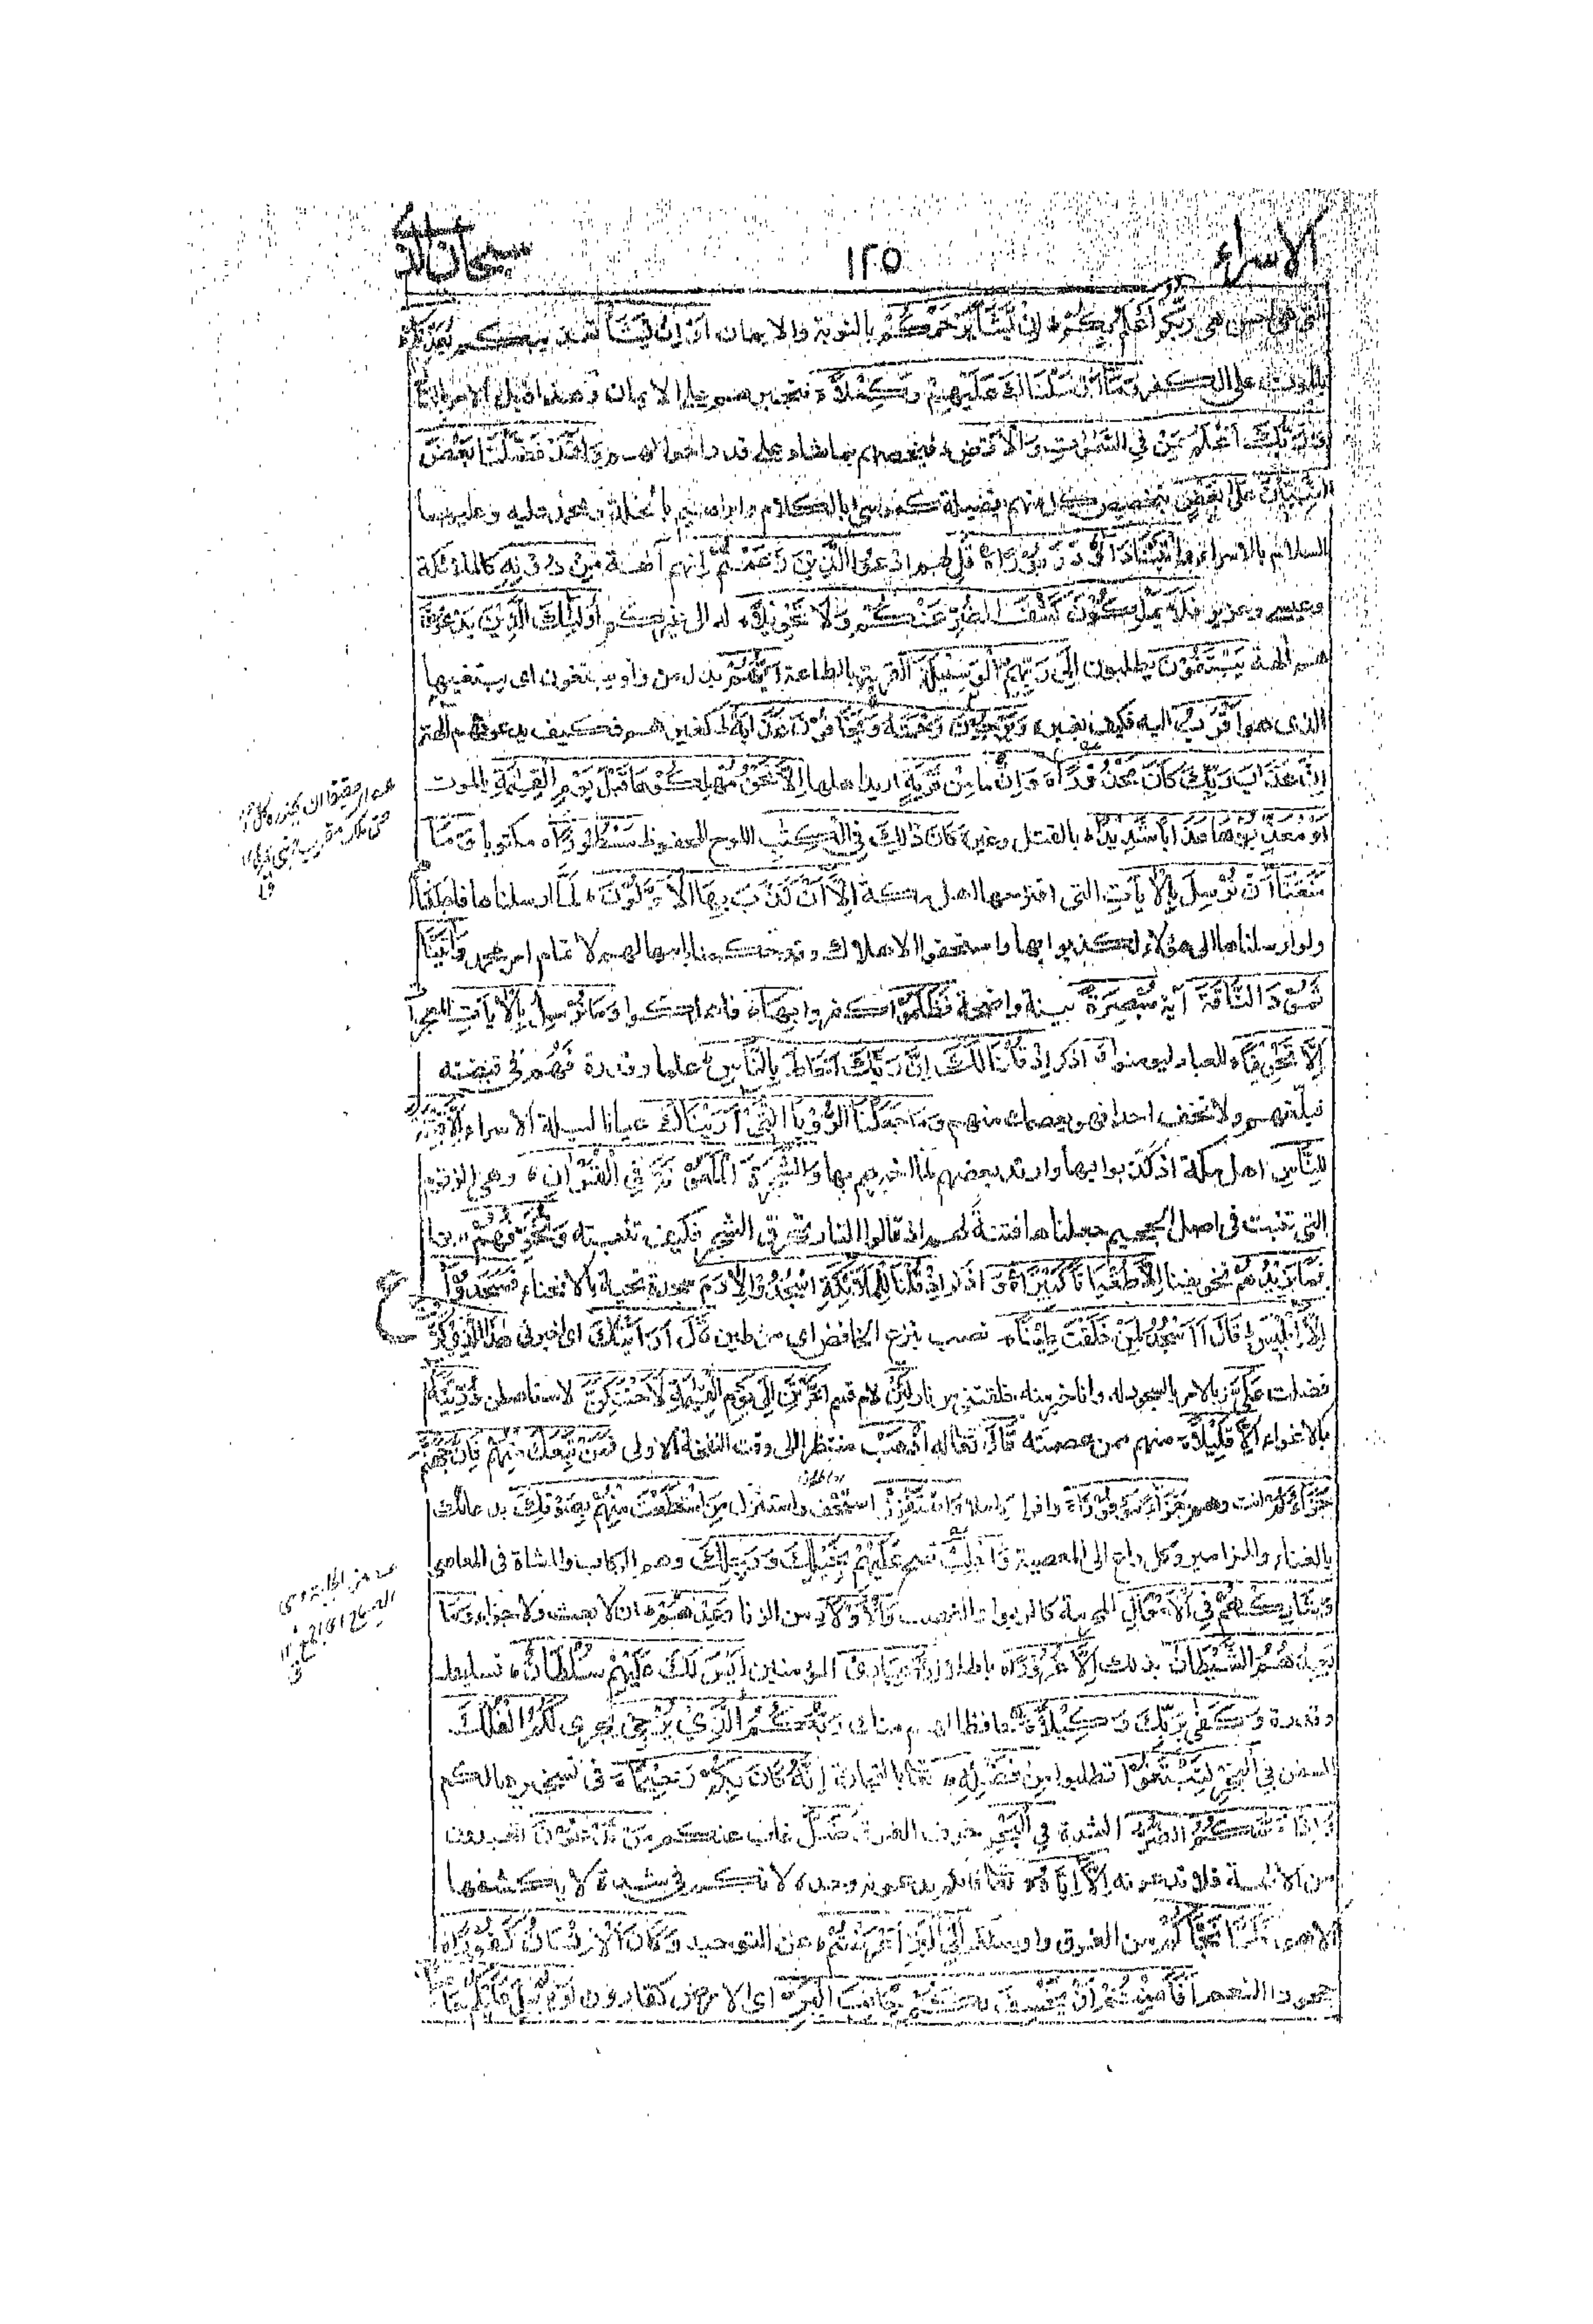 الاسراء ١٢٥ سبحان الذى
التى هى احسن هى رَبُّكُمْ أَعْلَمُ بِكُمْ إِنْ يَّشَأْ يَرْحَمْكُمْ بالتوبة والايمان أَوْ إِنْ يَّشَأْ تعذيبكم يُعَذِّبْكُمْ
بالموت على الكفر وَمَا أَرْسَلْنَاكَ عَلَيْهِمْ وَكِيْلًا فتجبرهم على الايمان وهذا قبل الامر بالقتال
وَرَبُّكَ أَعْلَمُ بِمَنْ فِي السَّمٰوَاتِ وَالْأَرْضِ فيخصهم بما شاء على قدر احوالهم وَلَقَدْ فَضَّلْنَا بَعْضَ
النَّبِيِّنَ عَلَى بَعْضٍ بتخصيص كل منهم بفضيلة كموسى بالكلام وابراهيم بالخلة ومحمد عليه وعليهما
السلام بالاسراء وَاٰتَيْنَا دَاوٗدَ زَبُوْرًا قُلِ لهم ادْعُوا الَّذِيْنَ زَعَمْتُمْ انهم اٰلهة مِّنْ دُوْنِهٖ كالملائكة
وعيسى وعزير فَلَا يَمْلِكُوْنَ كَشْفَ الضُّرِّ عَنْكُمْ وَلَا تَحْوِيْلًا له الى غيركم أُولٰئِكَ الَّذِيْنَ يَدْعُوْنَ
هم اٰلهة يَبْتَغُوْنَ يطلبون إِلَى رَبِّهِمُ الْوَسِيْلَةَ القربة بالطاعة أَيُّهُمْ بدل من واو يبتغون اى يبتغيها
الذى هو أَقْرَبُ اليه فكيف بغيره وَيَرْجُوْنَ رَحْمَتَهٗ وَيَخَافُوْنَ عَذَابَهٗ كغيرهم فكيف يدعونهم اٰلهة
إِنَّ عَذَابَ رَبِّكَ كَانَ مَحْذُوْرًا وَإِنْ ما مِّنْ قَرْيَةٍ اريد اهلها إِلَّا نَحْنُ مُهْلِكُوْهَا قَبْلَ يَوْمِ الْقِيٰمَةِ بالموت
أَوْ مُعَذِّبُوْهَا عَذَابًا شَدِيْدًا بالقتل وغيره كَانَ ذٰلِكَ فِي الْكِتٰبِ اللوح المحفوظ مَسْطُوْرًا مكتوبا وَمَا
مَنَعَنَا أَنْ نُّرْسِلَ بِالْاٰيَاتِ التى اقترحها اهل مكة إِلَّا أَنْ كَذَّبَ بِهَا الْأَوَّلُوْنَ لما ارسلناها فاهلكناهم
ولو ارسلناها الى هؤلاء لكذبوا بها واستحقوا الاهلاك وقد حكمنا بامهالهم لاتمام امر محمد وَاٰتَيْنَا
ثَمُوْدَ النَّاقَةَ اٰية مُبْصِرَةً بينة واضحة فَظَلَمُوْا كفروا بِهَا فاهلكوا وَمَا نُرْسِلُ بِالْاٰيَاتِ المعجزات
إِلَّا تَخْوِيْفًا للعباد ليؤمنوا وَ اذكر إِذْ قُلْنَا لَكَ إِنَّ رَبَّكَ أَحَاطَ بِالنَّاسِ علما وقدرة فهم فى قبضته
فبلغهم ولا تخف احدا فهو يعصمك منهم وَمَا جَعَلْنَا الرُّؤْيَا الَّتِيْ أَرَيْنٰكَ عيانا ليلة الاسراء إِلَّا فِتْنَةً
لِّلنَّاسِ اهل مكة اذ كذبوا بها وارتد بعضهم لما اخبرهم بها وَالشَّجَرَةَ الْمَلْعُوْنَةَ فِي الْقُرْاٰنِ وهى الزقوم
التى تنبت فى اصل الجحيم جعلناها فتنة لهم اذ قالوا النار تحرق الشجر فكيف تنبته وَنُخَوِّفُهُمْ بها
فَمَا يَزِيْدُهُمْ تخويفنا إِلَّا طُغْيَانًا كَبِيْرًا وَ اذكر إِذْ قُلْنَا لِلْمَلٰئِكَةِ اسْجُدُوْا لِاٰدَمَ سجدة تحية بالانحناء فَسَجَدُوْا
إِلَّا إِبْلِيْسَ قَالَ أَأَسْجُدُ لِمَنْ خَلَقْتَ طِيْنًا نصب بنزع الخافض اى من طين قَالَ أَرَأَيْتَكَ اى اخبرنى هٰذَا الَّذِيْ كَرَّمْتَ
فضلت عَلَيَّ بالامر بالسجود له وانا خير منه خلقتنى من نار لَئِنْ لام قسم أَخَّرْتَنِ إِلَى يَوْمِ الْقِيٰمَةِ لَأَحْتَنِكَنَّ لاستاصلن ذُرِّيَّتَهٗ
بالاغواء إِلَّا قَلِيْلًا منهم ممن عصمته قَالَ تعالى له اذْهَبْ منتظرا الى وقت النفخة الاولى فَمَنْ تَبِعَكَ مِنْهُمْ فَإِنَّ جَهَنَّمَ
جَزَاؤُكُمْ انت وهم جَزَاءً مَّوْفُوْرًا وافرا كاملا وَاسْتَفْزِزْ استخف واستنزل مَنِ اسْتَطَعْتَ مِنْهُمْ بِصَوْتِكَ بدعائك
بالغناء والمزامير وكل داع الى المعصية وَأَجْلِبْ صح عَلَيْهِمْ بِخَيْلِكَ وَرَجِلِكَ وهم الركاب والمشاة فى المعاصى
وَشَارِكْهُمْ فِي الْأَمْوَالِ المحرمة كالربوا والغصب وَالْأَوْلَادِ من الزنا وَعِدْهُمْ ان لا بعث ولا جزاء وَمَا
يَعِدُهُمُ الشَّيْطَانُ بذلك إِلَّا غُرُوْرًا باطلا إِنَّ عِبَادِيْ المؤمنين لَيْسَ لَكَ عَلَيْهِمْ سُلْطَانٌ تسليط
وقدرة وَكَفٰى بِرَبِّكَ وَكِيْلًا حافظا لهم منك رَبُّكُمُ الَّذِيْ يُزْجِيْ يجرى لَكُمُ الْفُلْكَ
السفن فِي الْبَحْرِ لِتَبْتَغُوْا تطلبوا مِنْ فَضْلِهٖ تعالى بالتجارة إِنَّهٗ كَانَ بِكُمْ رَحِيْمًا فى تسخيرها لكم
وَإِذَا مَسَّكُمُ الضُّرُّ الشدة فِي الْبَحْرِ خوف الغرق ضَلَّ غاب عنكم مَنْ تَدْعُوْنَ تعبدون
من الاٰلهة فلا تدعونه إِلَّا إِيَّاهُ تعالى فانكم تدعونه وحده لانكم فى شدة لا يكشفها
الا هو فَلَمَّا نَجّٰكُمْ من الغرق واوصلكم إِلَى الْبَرِّ أَعْرَضْتُمْ عن التوحيد وَكَانَ الْإِنْسَانُ كَفُوْرًا
جحودا للنعم أَفَأَمِنْتُمْ أَنْ يَّخْسِفَ بِكُمْ جَانِبَ الْبَرِّ اى الارض كقارون أَوْ يُرْسِلَ عَلَيْكُمْ